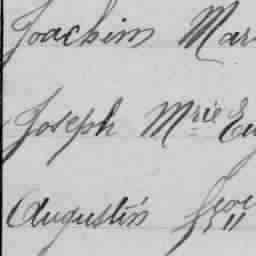 Joachim Mar
Joseph Mrie Eu
Augustin